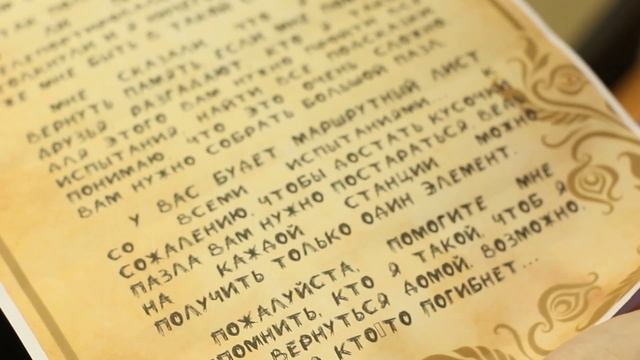 ТАК
ТЕЛЕПОРТИРОВАЛ
ТОЛКНУЛИ И Я
ЖЕ МНЕ БЫТЬ С ТАКОЙ
МНЕ СКАЗАЛИ, ЧТО
ВЕРНУТЬ ПАМЯТЬ, ЕСЛИ МНЕ
ДРУЗЬЯ РАЗГАДАЮТ КТО Я
ДЛЯ ЭТОГО ВАМ НУЖНО ПРОЙТИ ВСЕ
ИСПЫТАНИЯ, НАЙТИ ВСЕ ПОДСКАЗКИ
ПОНИМАЮ, ЧТО ЭТО ОЧЕНЬ СЛОЖНО
ВАМ НУЖНО СОБРАТЬ БОЛЬШОЙ ПАЗЛ
У ВАС БУДЕТ МАРШРУТНЫЙ ЛИСТ
СО ВСЕМИ ИСПЫТАНИЯМИ... К
СОЖАЛЕНИЮ, ЧТОБЫ ДОСТАТЬ КУСОЧКИ
ПАЗЛА ВАМ НУЖНО ПОСТАРАТЬСЯ ВЕДЬ
НА КАЖДОЙ СТАНЦИИ МОЖНО
ПОЛУЧИТЬ ТОЛЬКО ОДИН ЭЛЕМЕНТ.
ПОЖАЛУЙСТА, ПОМОГИТЕ МНЕ
КТО Я ТАКОЙ, ЧТОБ Я
ВЕРНУТЬСЯ ДОМОЙ. ВОЗМОЖНО,
КТО▯ТО ПОГИБНЕТ...